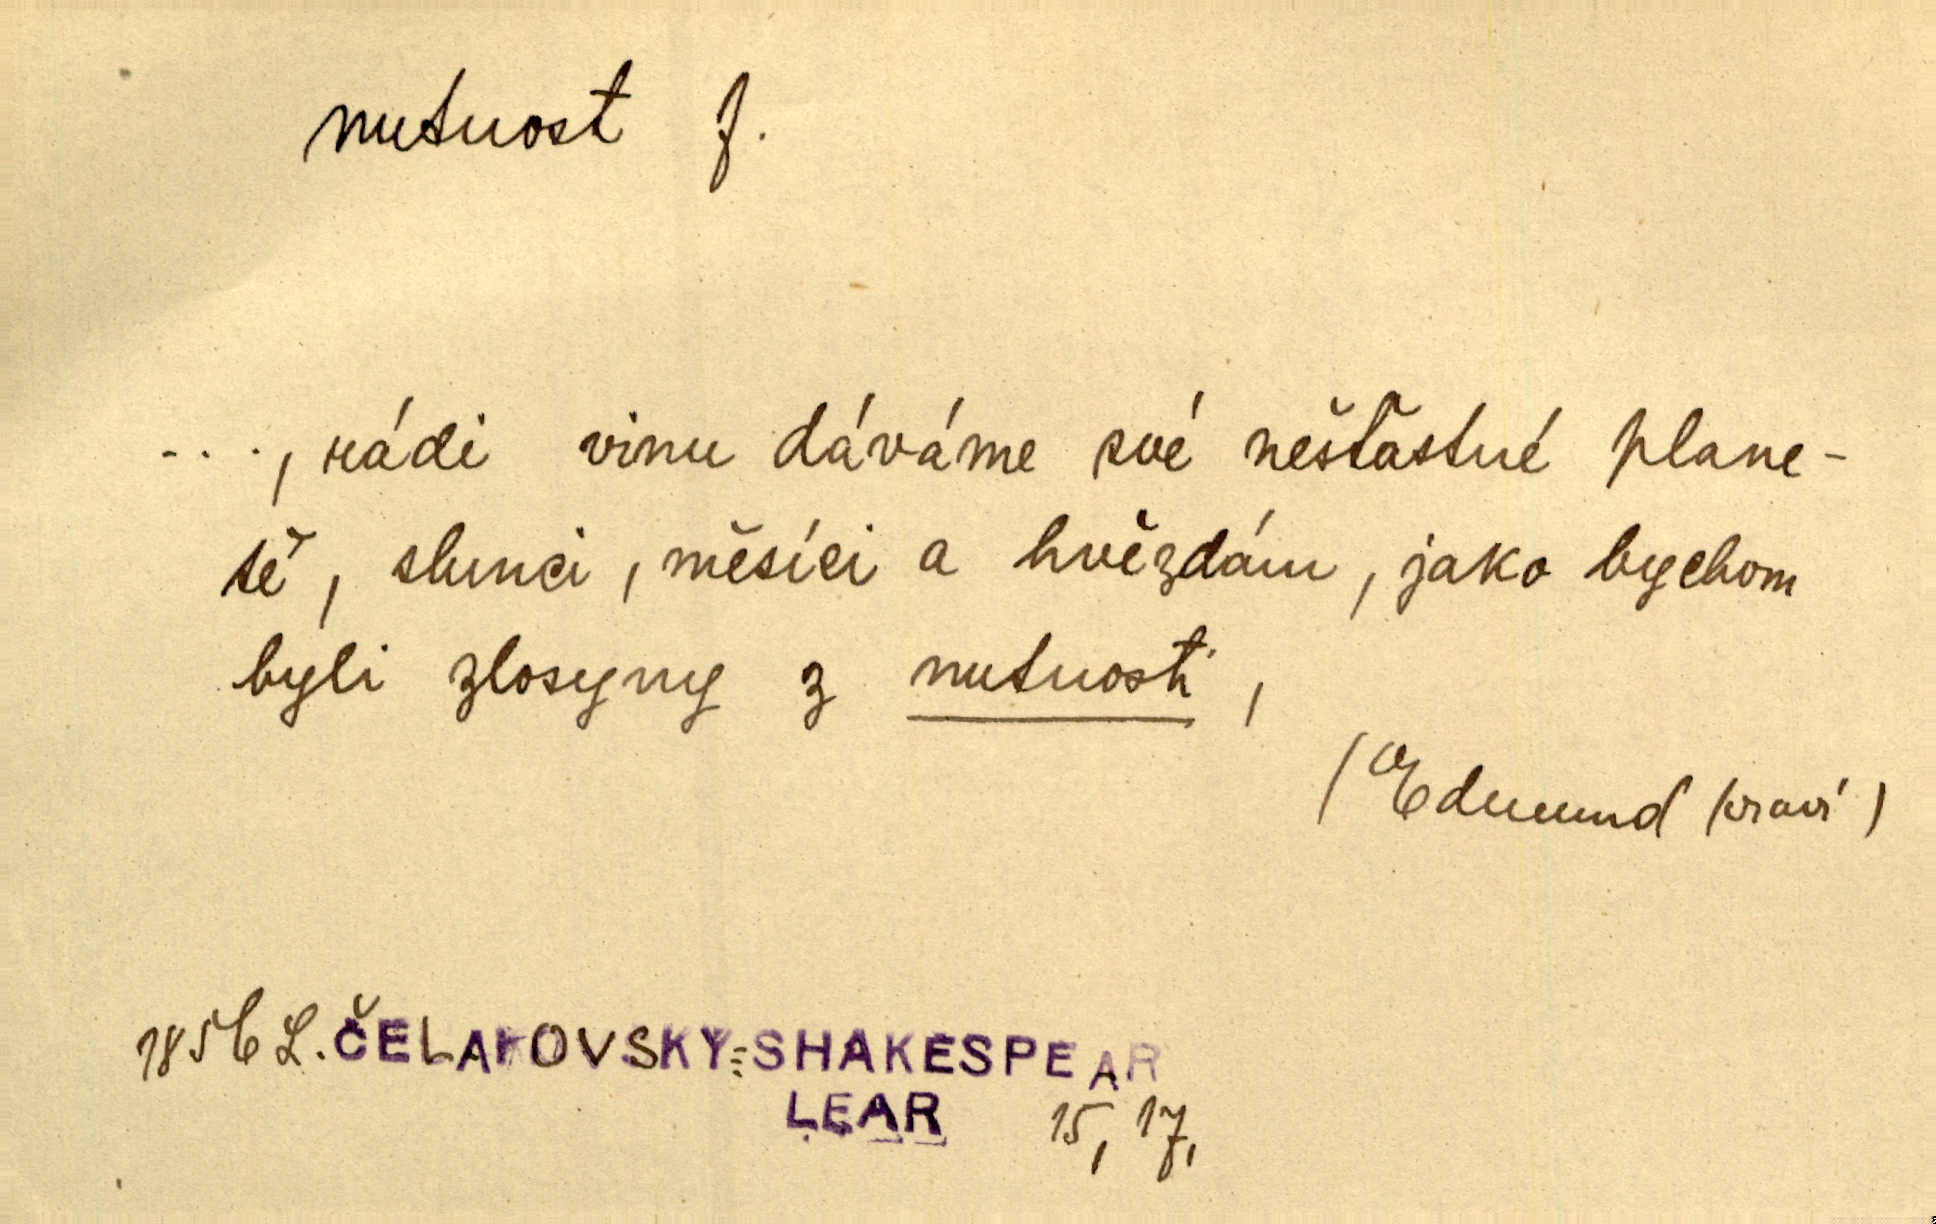 nutnost f.
...., rádi vinu dáváme své nešťastné plane-
tě, slunci, měsíci a hvězdám, jako bychom
byli zlosyny z nutnosti,
(Edmund praví)
1856 L. ČELAKOVSKY=SHAKESPEAR
LEAR 15, 17,